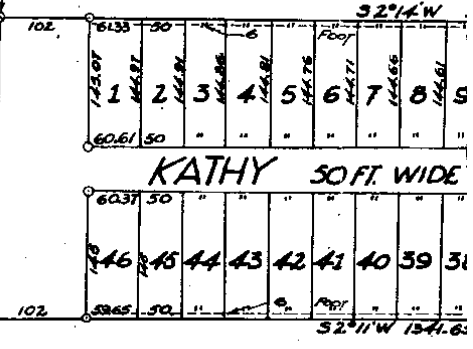 S 2°14'W
102 61.33 50 " 6 " " Foot " " "
145.07 144.97 144.91 144.86 144.81 144.76 144.71 144.66 144.61
1 2 3 4 5 6 7 8 9
60.61 50 " " " " " " "
KATHY 50 FT. WIDE
60.37 50 " " " " " " "
148 148
46 45 44 43 42 41 40 39 38
102 59.65 50 " " 6 Foot " " "
S 2°11'W 1341.65